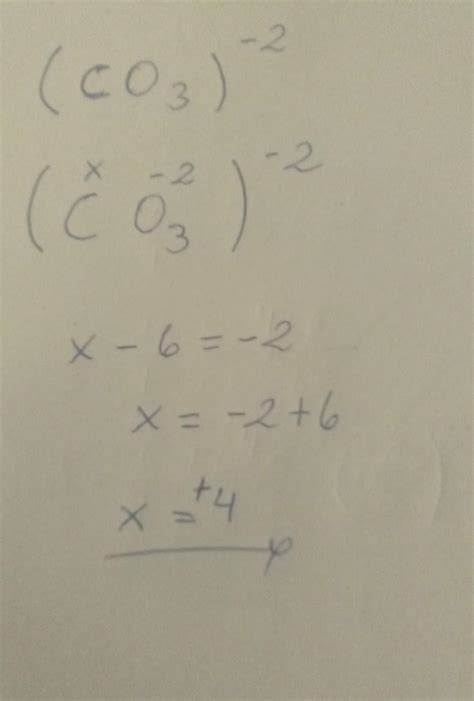 (CO₃)⁻²
x -2
(C O₃)⁻²
x - 6 = -2
x = -2 + 6
x = +4